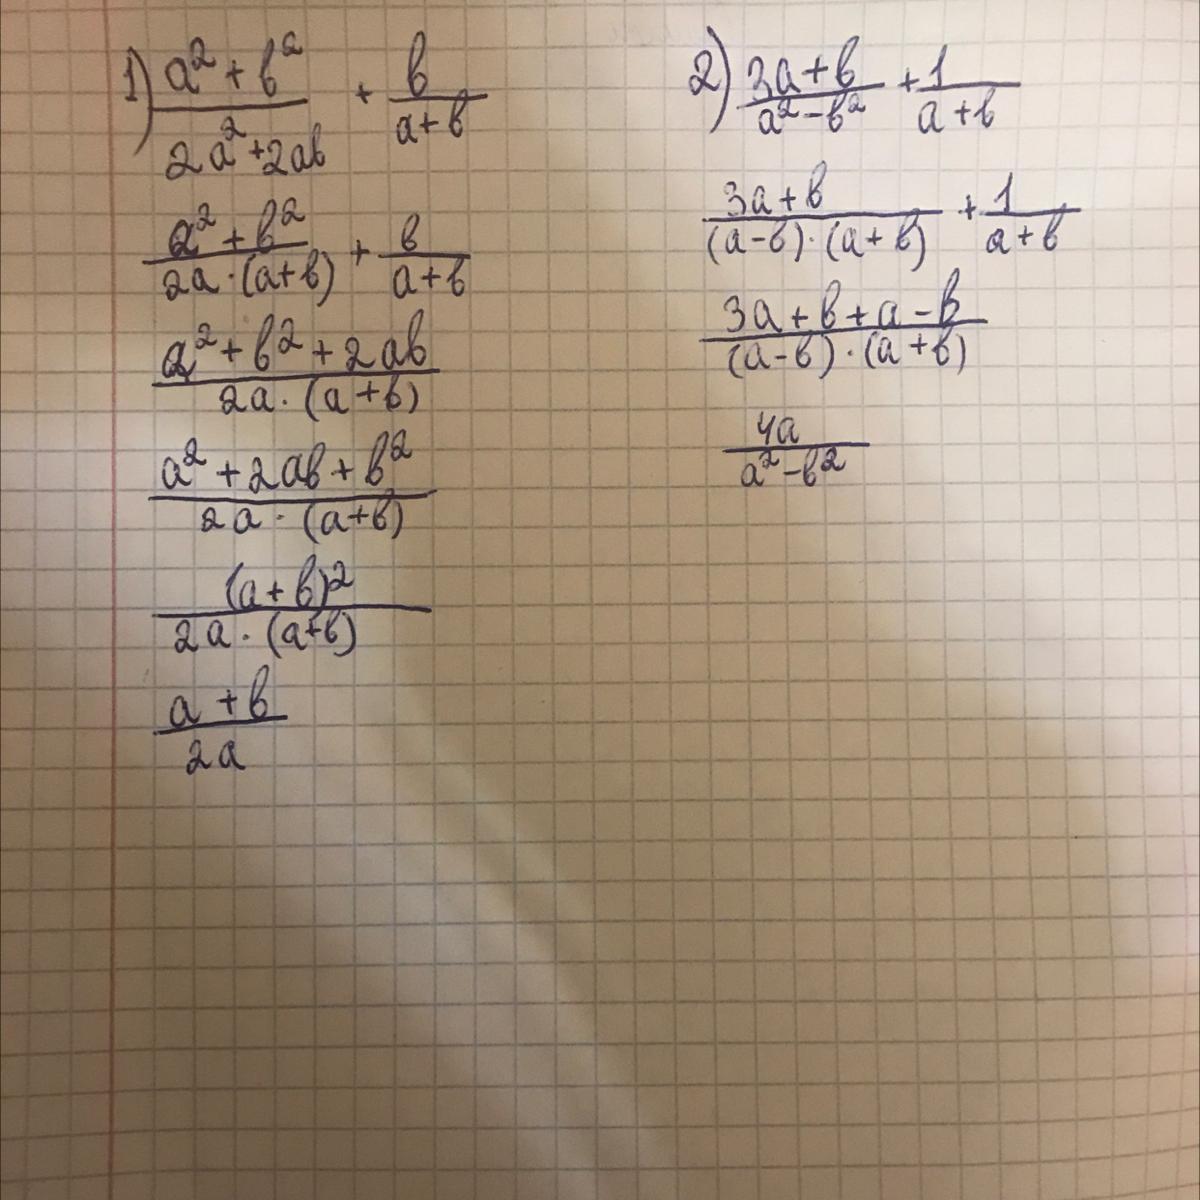 1) a² + b² / 2a² + 2ab + b / a + b
a² + b² / 2a · (a + b) + b / a + b
a² + b² + 2ab / 2a · (a + b)
a² + 2ab + b² / 2a · (a + b)
(a + b)² / 2a · (a + b)
a + b / 2a
2) 3a + b / a² - b² + 1 / a + b
3a + b / (a - b) · (a + b) + 1 / a + b
3a + b + a - b / (a - b) · (a + b)
4a / a² - b²